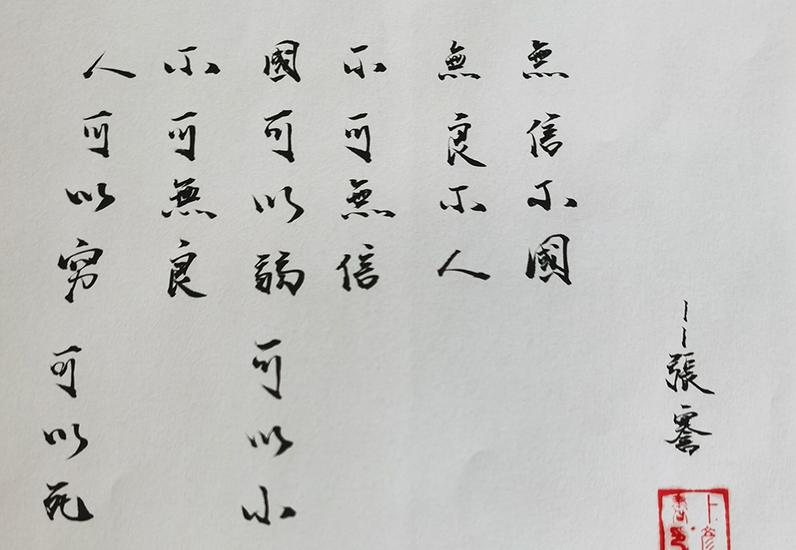 人可以穷可以死
不可無良
國可以弱可以小
不可無信
無良不人
無信不國
——張謇